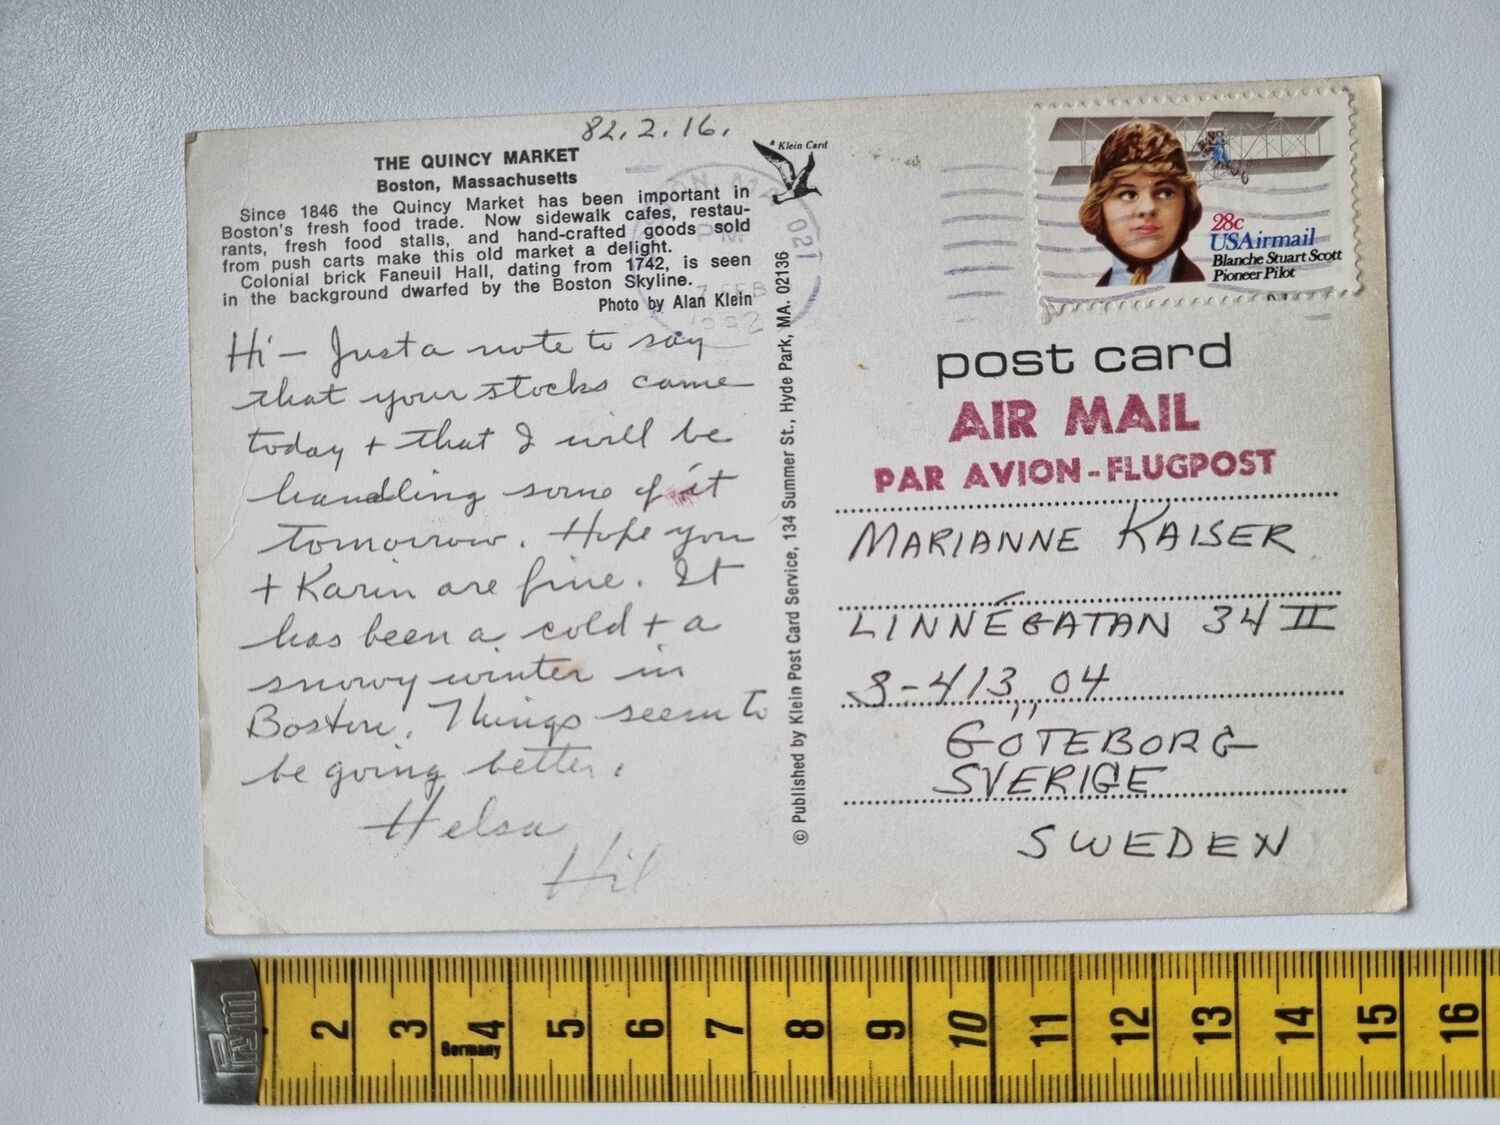 82.2.16.
THE QUINCY MARKET
Boston, Massachusetts
Since 1846 the Quincy Market has been important in
Boston's fresh food trade. Now sidewalk cafes, restau-
rants, fresh food stalls, and hand-crafted goods sold
from push carts make this old market a delight.
Colonial brick Faneuil Hall, dating from 1742, is seen
in the background dwarfed by the Boston Skyline.
Photo by Alan Klein
Hi - Just a note to say
that your stocks came
today + that I will be
handling some of it
tomorrow. Hope you
+ Karin are fine. It
has been a cold + a
snowy winter in
Boston. Things seem to
be going better.
Helsa
a Klein Card
MA 021
PM
FEB
1982
© Published by Klein Post Card Service, 134 Summer St., Hyde Park, MA. 02136
28c
USAirmail
Blanche Stuart Scott
Pioneer Pilot
post card
AIR MAIL
PAR AVION-FLUGPOST
MARIANNE KAISER
LINNÉGATAN 34 II
S-413 04
GÖTEBORG
SVERIGE
SWEDEN
Prym
2 3 4 5 6 7 8 9 10 11 12 13 14 15 16
Germany